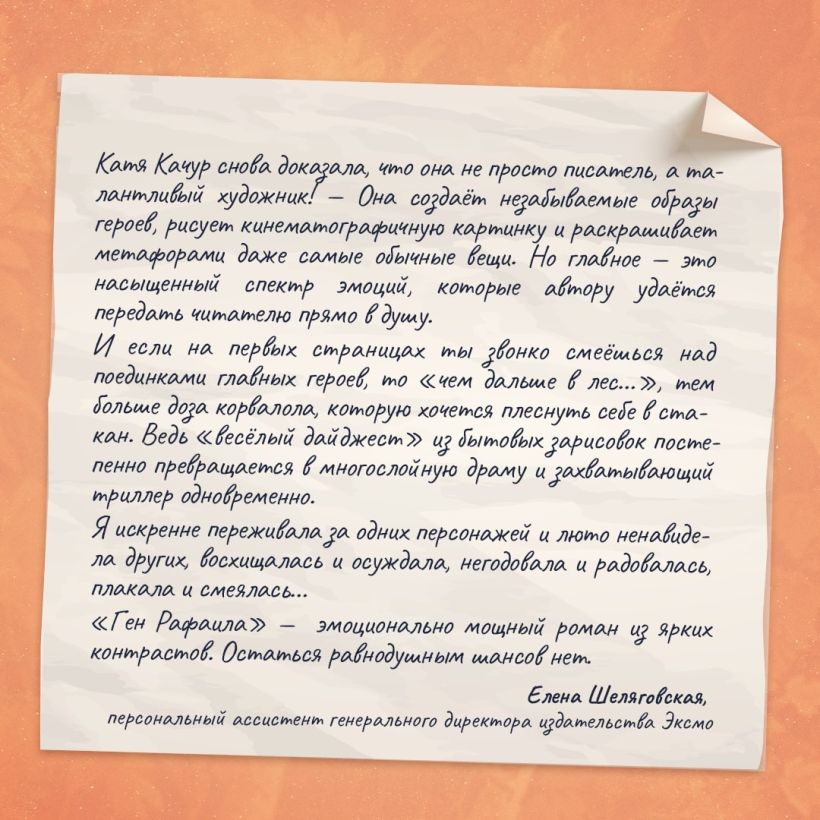 Катя Качур снова доказала, что она не просто писатель, а та-
лантливый художник! – Она создаёт незабываемые образы
героев, рисует кинематографичную картинку и раскрашивает
метафорами даже самые обычные вещи. Но главное – это
насыщенный спектр эмоций, которые автору удаётся
передать читателю прямо в душу.
И если на первых страницах ты звонко смеёшься над
поединками главных героев, то «чем дальше в лес...», тем
больше доза корвалола, которую хочется плеснуть себе в ста-
кан. Ведь «весёлый дайджест» из бытовых зарисовок посте-
пенно превращается в многослойную драму и захватывающий
триллер одновременно.
Я искренне переживала за одних персонажей и люто ненавиде-
ла других, восхищалась и осуждала, негодовала и радовалась,
плакала и смеялась...
«Ген Рафаила» – эмоционально мощный роман из ярких
контрастов. Остаться равнодушным шансов нет.
Елена Шеляговская,
персональный ассистент генерального директора издательства Эксмо